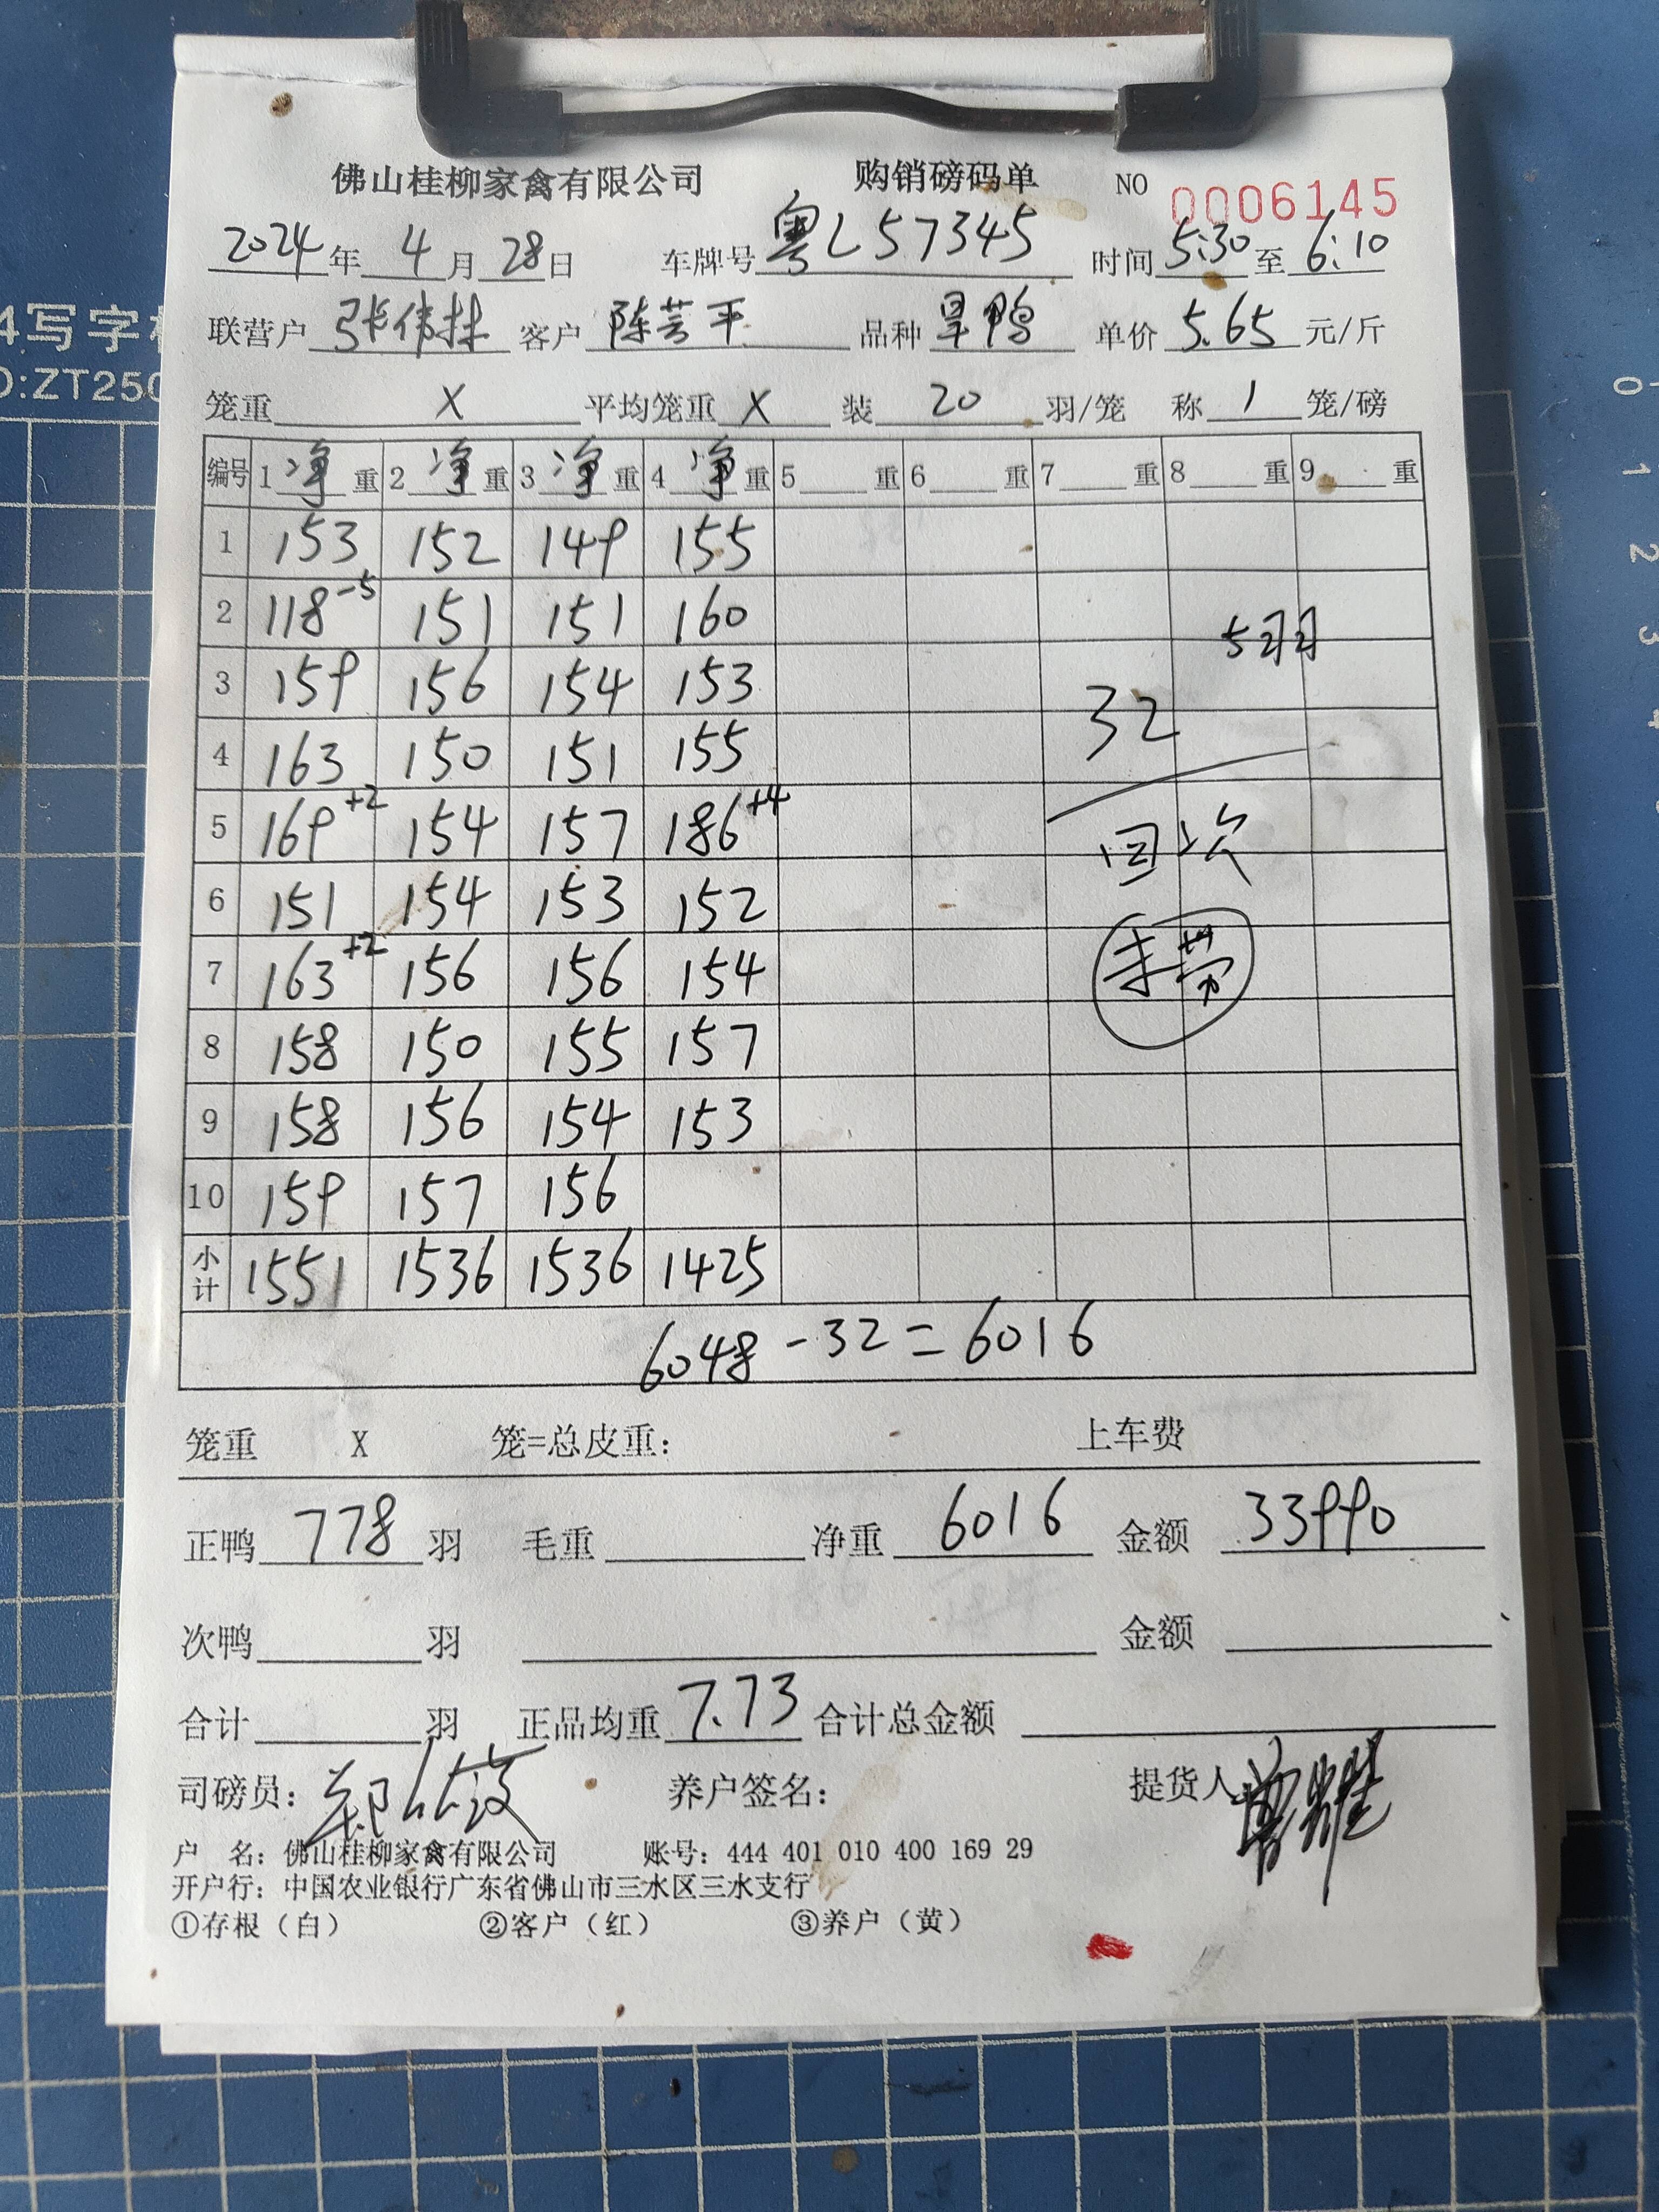 佛山桂柳家禽有限公司 购销磅码单 NO 0006145
2024年4月28日 车牌号 粤L57345 时间 5:30 至 6:10
联营户 张伟林 客户 陈芸平 品种 旱鸭 单价 5.65 元/斤
笼重 X 平均笼重 X 装 20 羽/笼 称 1 笼/磅
编号 1 净 重 2 净 重 3 净 重 4 净 重 5 重 6 重 7 重 8 重 9 重
1 153 152 149 155
2 118-5 151 151 160 5羽
3 159 156 154 153 32
4 163 150 151 155
5 169+2 154 157 186+4 回次
6 151 154 153 152
7 163+2 156 156 154
8 158 150 155 157
9 158 156 154 153
10 159 157 156
小计 1551 1536 1536 1425
6048-32=6016
笼重 X 笼=总皮重: 上车费
正鸭 778 羽 毛重 净重 6016 金额 33990
次鸭 羽 金额
合计 羽 正品均重 7.73 合计总金额
司磅员: 养户签名: 提货人
户 名: 佛山桂柳家禽有限公司 账号: 444 401 010 400 169 29
开户行: 中国农业银行广东省佛山市三水区三水支行
①存根（白） ②客户（红） ③养户（黄）
4写字
D:ZT250
0
1
2
3
4